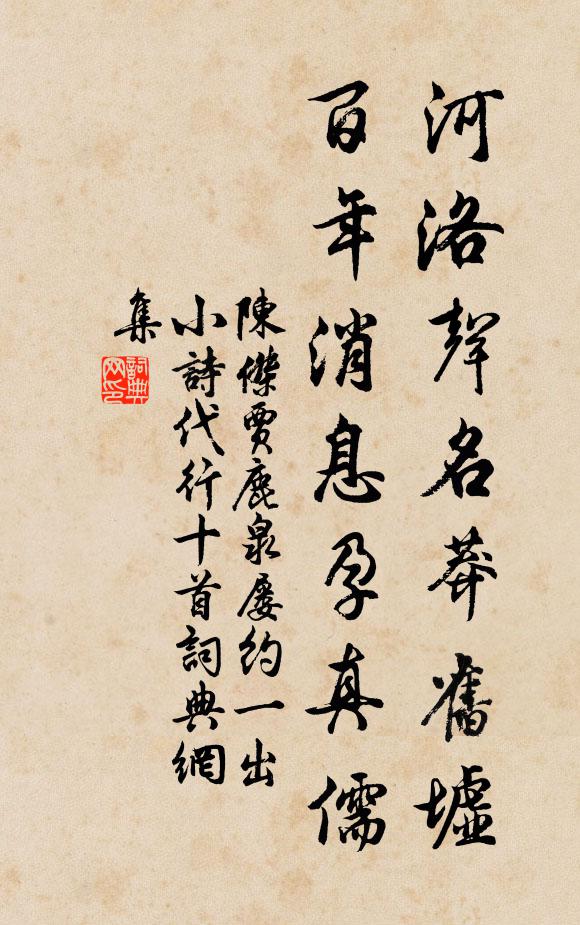 河洛聲名莽舊墟
百年消息孕真儒
陳傑賈鹿泉屡約一出
小詩代行十首詞典網
集
詞典網印